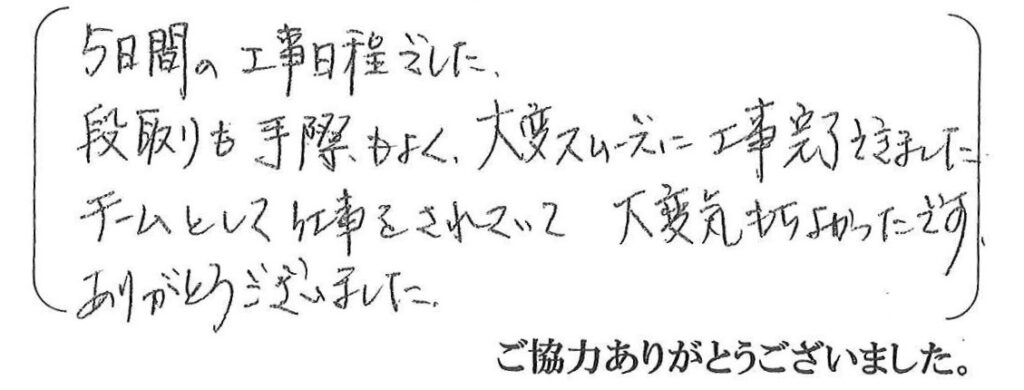 5日間の工事日程でした、
段取りも手際もよく、大変スムーズに工事完了できました
チームとして仕事をされていて 大変気もちよかったです、
ありがとうございました、
ご協力ありがとうございました。